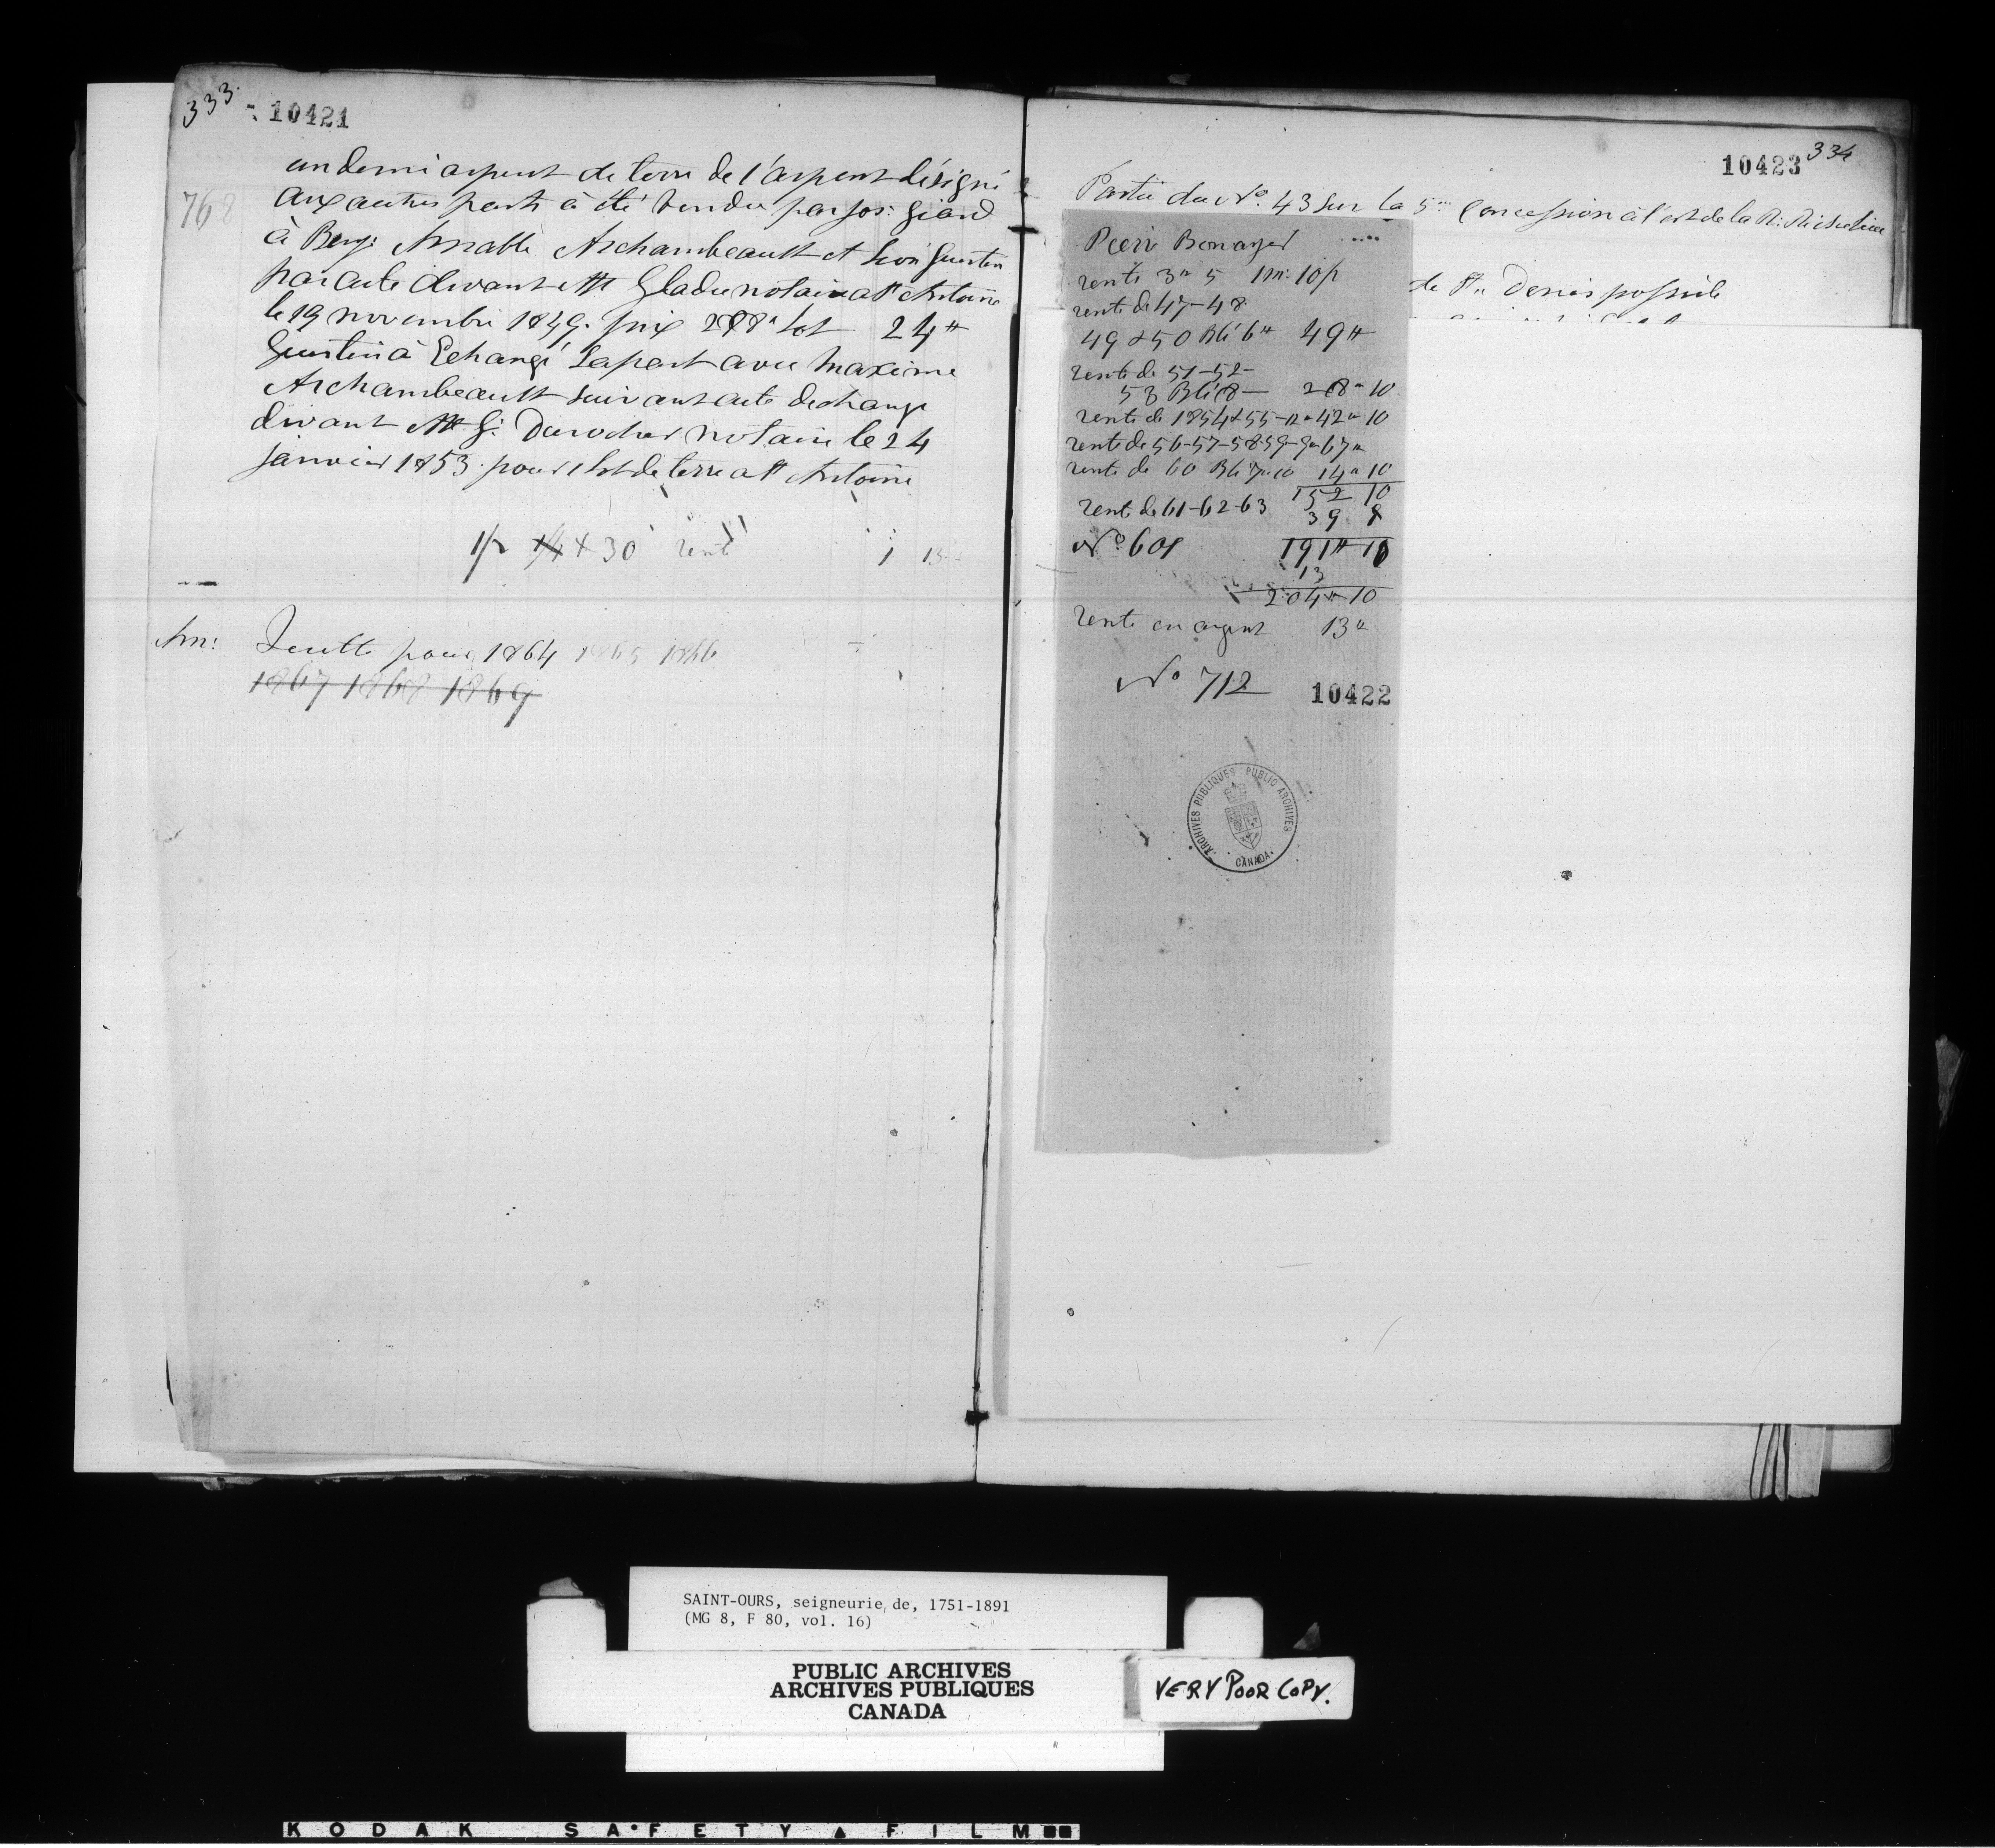 333 10421
un demi arpent de terre de l'arpent désigné
768
aux autres parts à été vendu par Jos: Giard
à Benj: Amable Archambeault et Léon Guertin
par acte devant Mtr Gladu notaire a St Antoine
le 19 novembre 1849. prix 288" Lot 24tt
Guertin à Echangé sa part avec Maxime
Archambeault suivant acte dechange
devant Mtr G: Durocher notaire le 24
janvier 1853. pour 1 lot de terre a St Antoine
1/2 14 x 30 rente 1 13
Am: Quitte pour 1864 1865 1866
1867 1868 1869
10423 334
Partie du No. 43 sur la 5me Concession à l'est de la R: Richelieu
de St Denis possédé
Pierre Bonayer
rente 3" 5 1 m: 10 p
rente de 47-48
49 & 50 Blé 6tt 49tt
rente de 51-52-
53 Blé 8 — 28" 10
rente de 1854 & 55-12" 42" 10
rente de 56-57-58-59-9" 67"
rente de 60 Blé 7" 10 14" 10
152 10
rente de 61-62-63 39 8
No 601 191tt 10
13
204" 10
rente en argent 13"
No 712 10422
ARCHIVES PUBLIQUES PUBLIC ARCHIVES
CANADA
SAINT-OURS, seigneurie de, 1751-1891
(MG 8, F 80, vol. 16)
PUBLIC ARCHIVES
ARCHIVES PUBLIQUES
CANADA
VERY POOR COPY.
KODAK SAFETY FILM